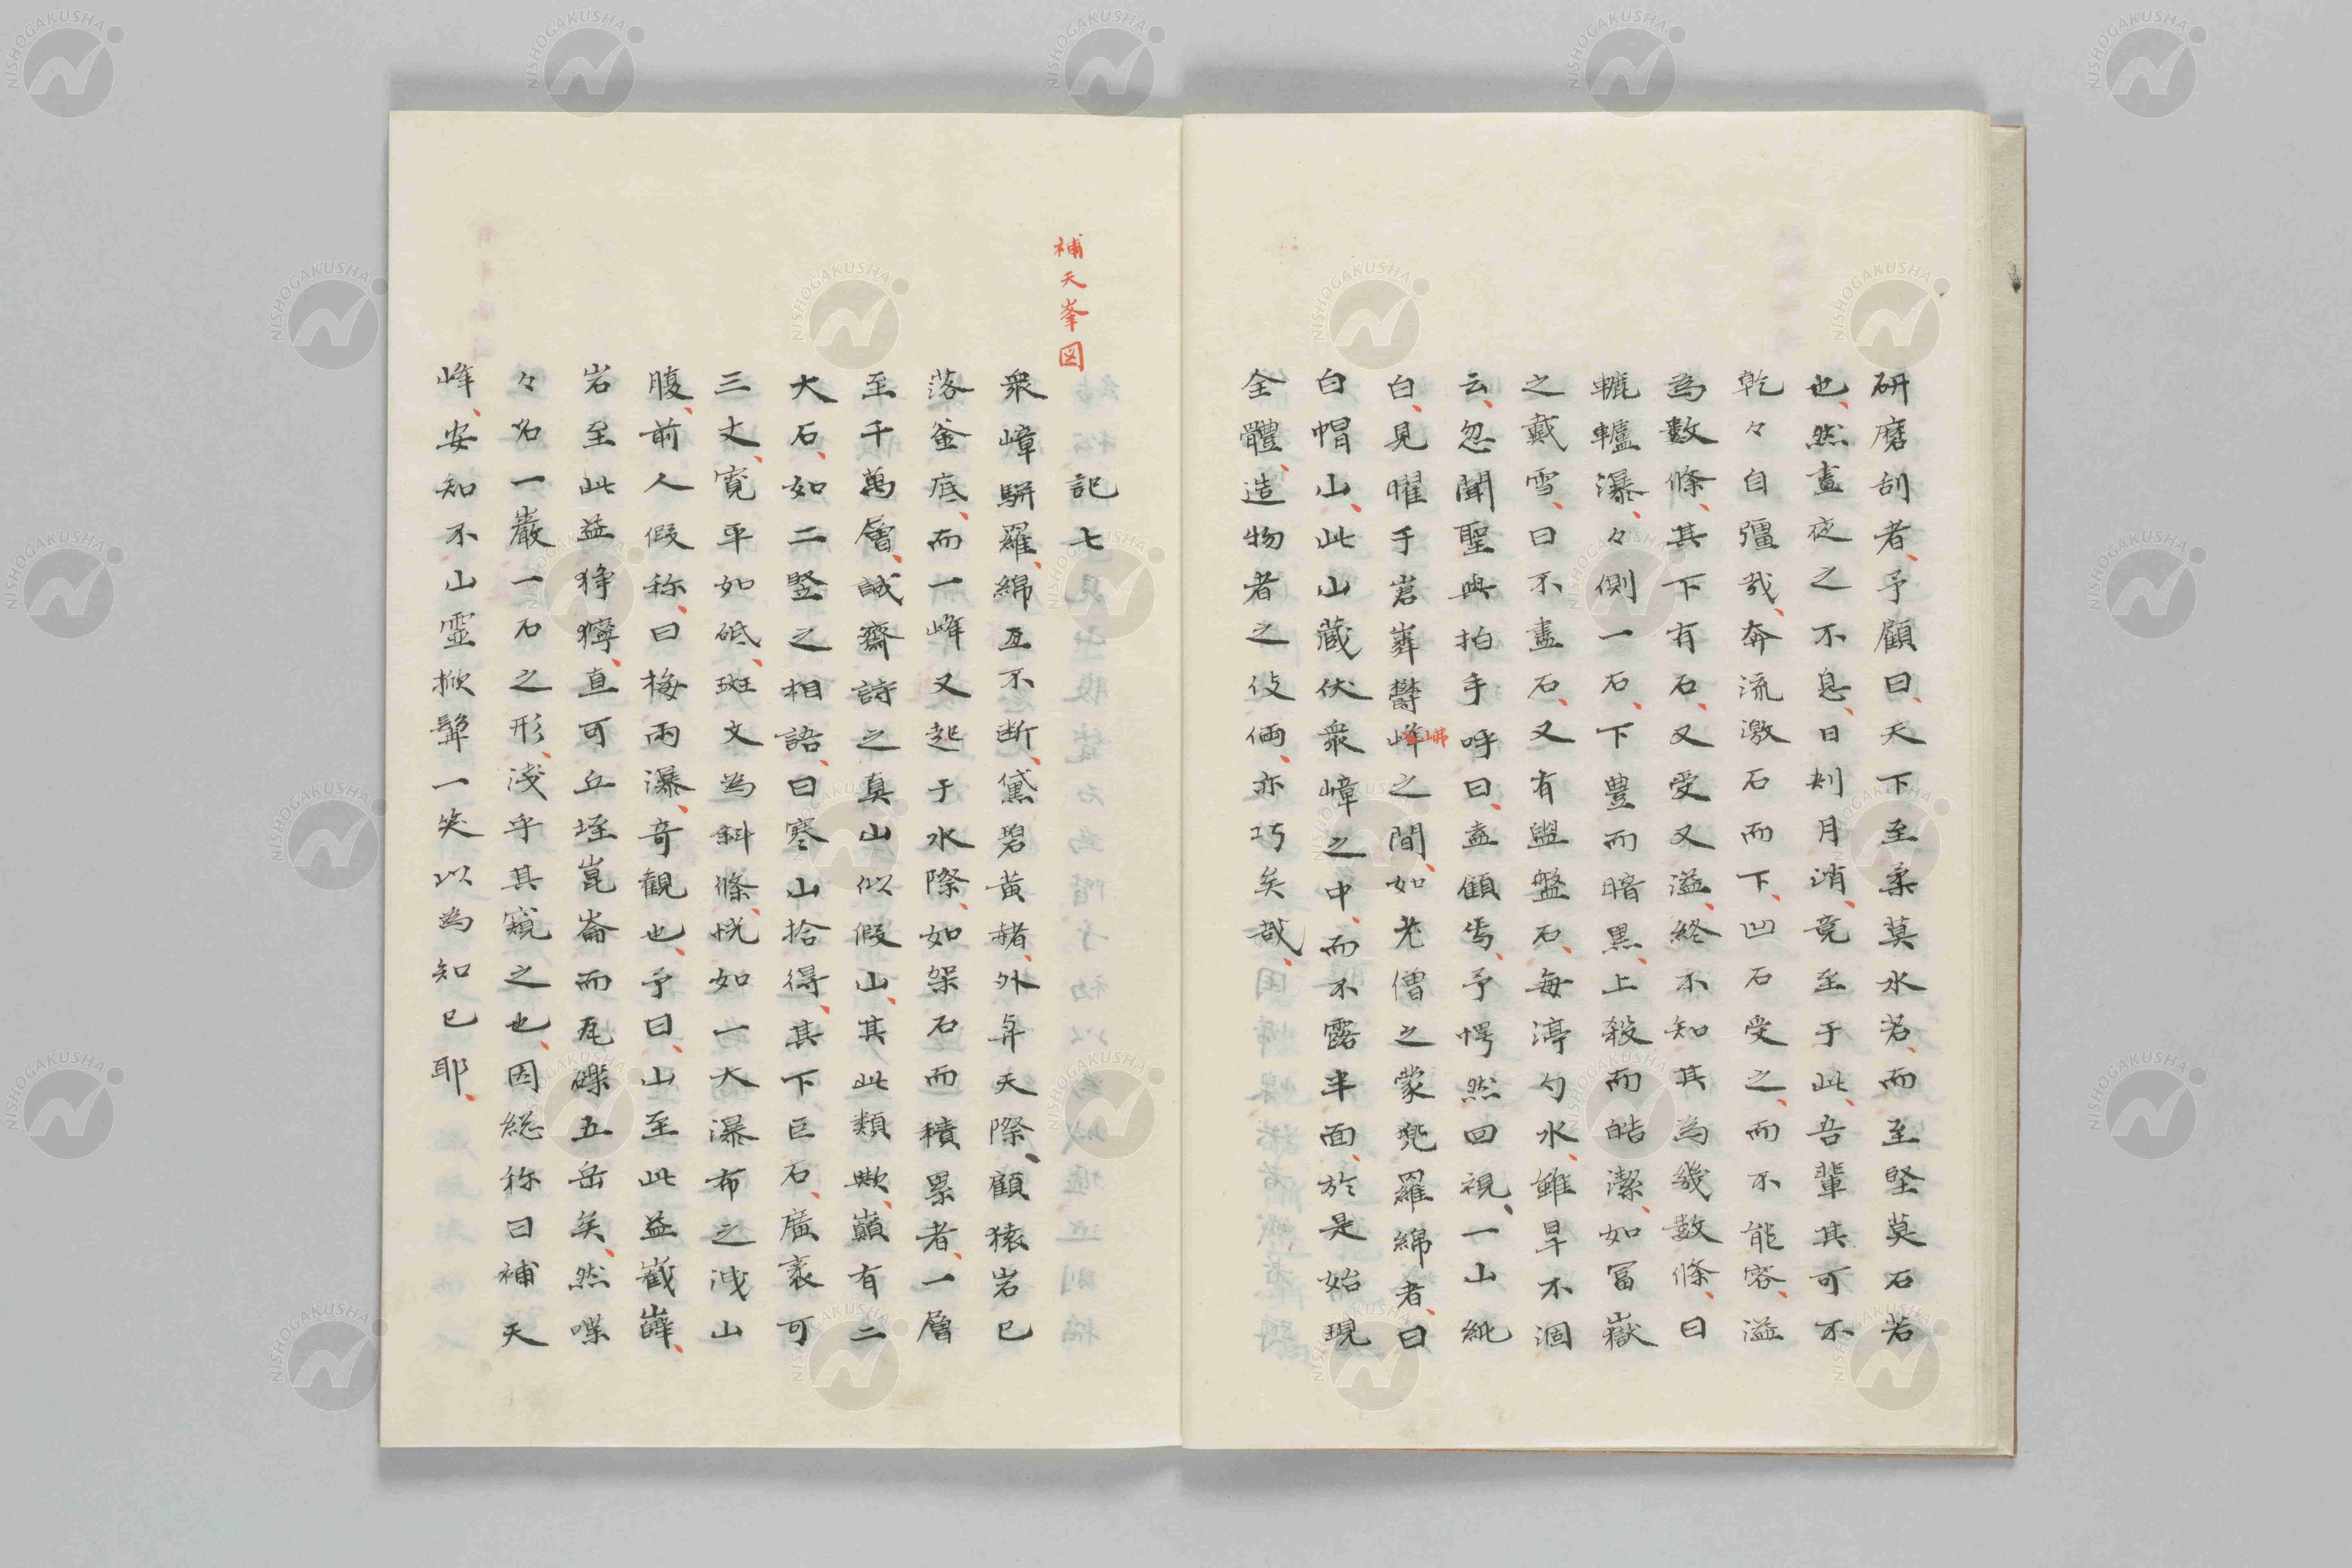 研磨刮者、予顧曰、天下至柔莫水若、而至堅莫石若
也、然晝夜之不息、日刔月消、竟至于此、吾輩其可不
乾々自彊哉、奔流激石而下、凹石受之、而不能容、溢
為數條、其下有石、又受又溢、終不知其為幾數條、曰
轆轤瀑、々側一石、下豊而暗黒、上殺而皓潔、如冨嶽
之戴雪、曰不盡石、又有盥盤石、毎渟勺水、雖旱不涸
云、忽聞聖與拍手呼曰、盍顧焉、予愕然回視、一山純
白、見曜于嵩崋鬱峰岪之間、如老僧之蒙兜羅綿者、曰
白帽山、此山蔵伏衆嶂之中、而不露半面、於是始現
全體、造物者之伎倆、亦巧矣哉、
補天峯図
記七
衆嶂駢羅、綿亙不断、黛碧黄赭、外弁天際、顧猿岩已
落釜底、而一峰又起于水際、如架石而積累者、一層
至千萬層、誠齋詩之真山似假山、其此類歟、巓有二
大石、如二竪之相語、曰寒山拾得、其下巨石、廣袤可
三丈、寛平如砥、斑文為斜條、恍如一大瀑布之洩山
腹、前人假称、曰梅雨瀑、奇観也、予曰、山至此益巀嶭、
岩至此益猙獰、直可丘垤崑崙而瓦礫五岳矣、然喋
々名一巌一石之形、浅乎其窺之也、因総称曰補天
峰、安知不山霊掀髯一笑以為知已耶、
NISHOGAKUSHA